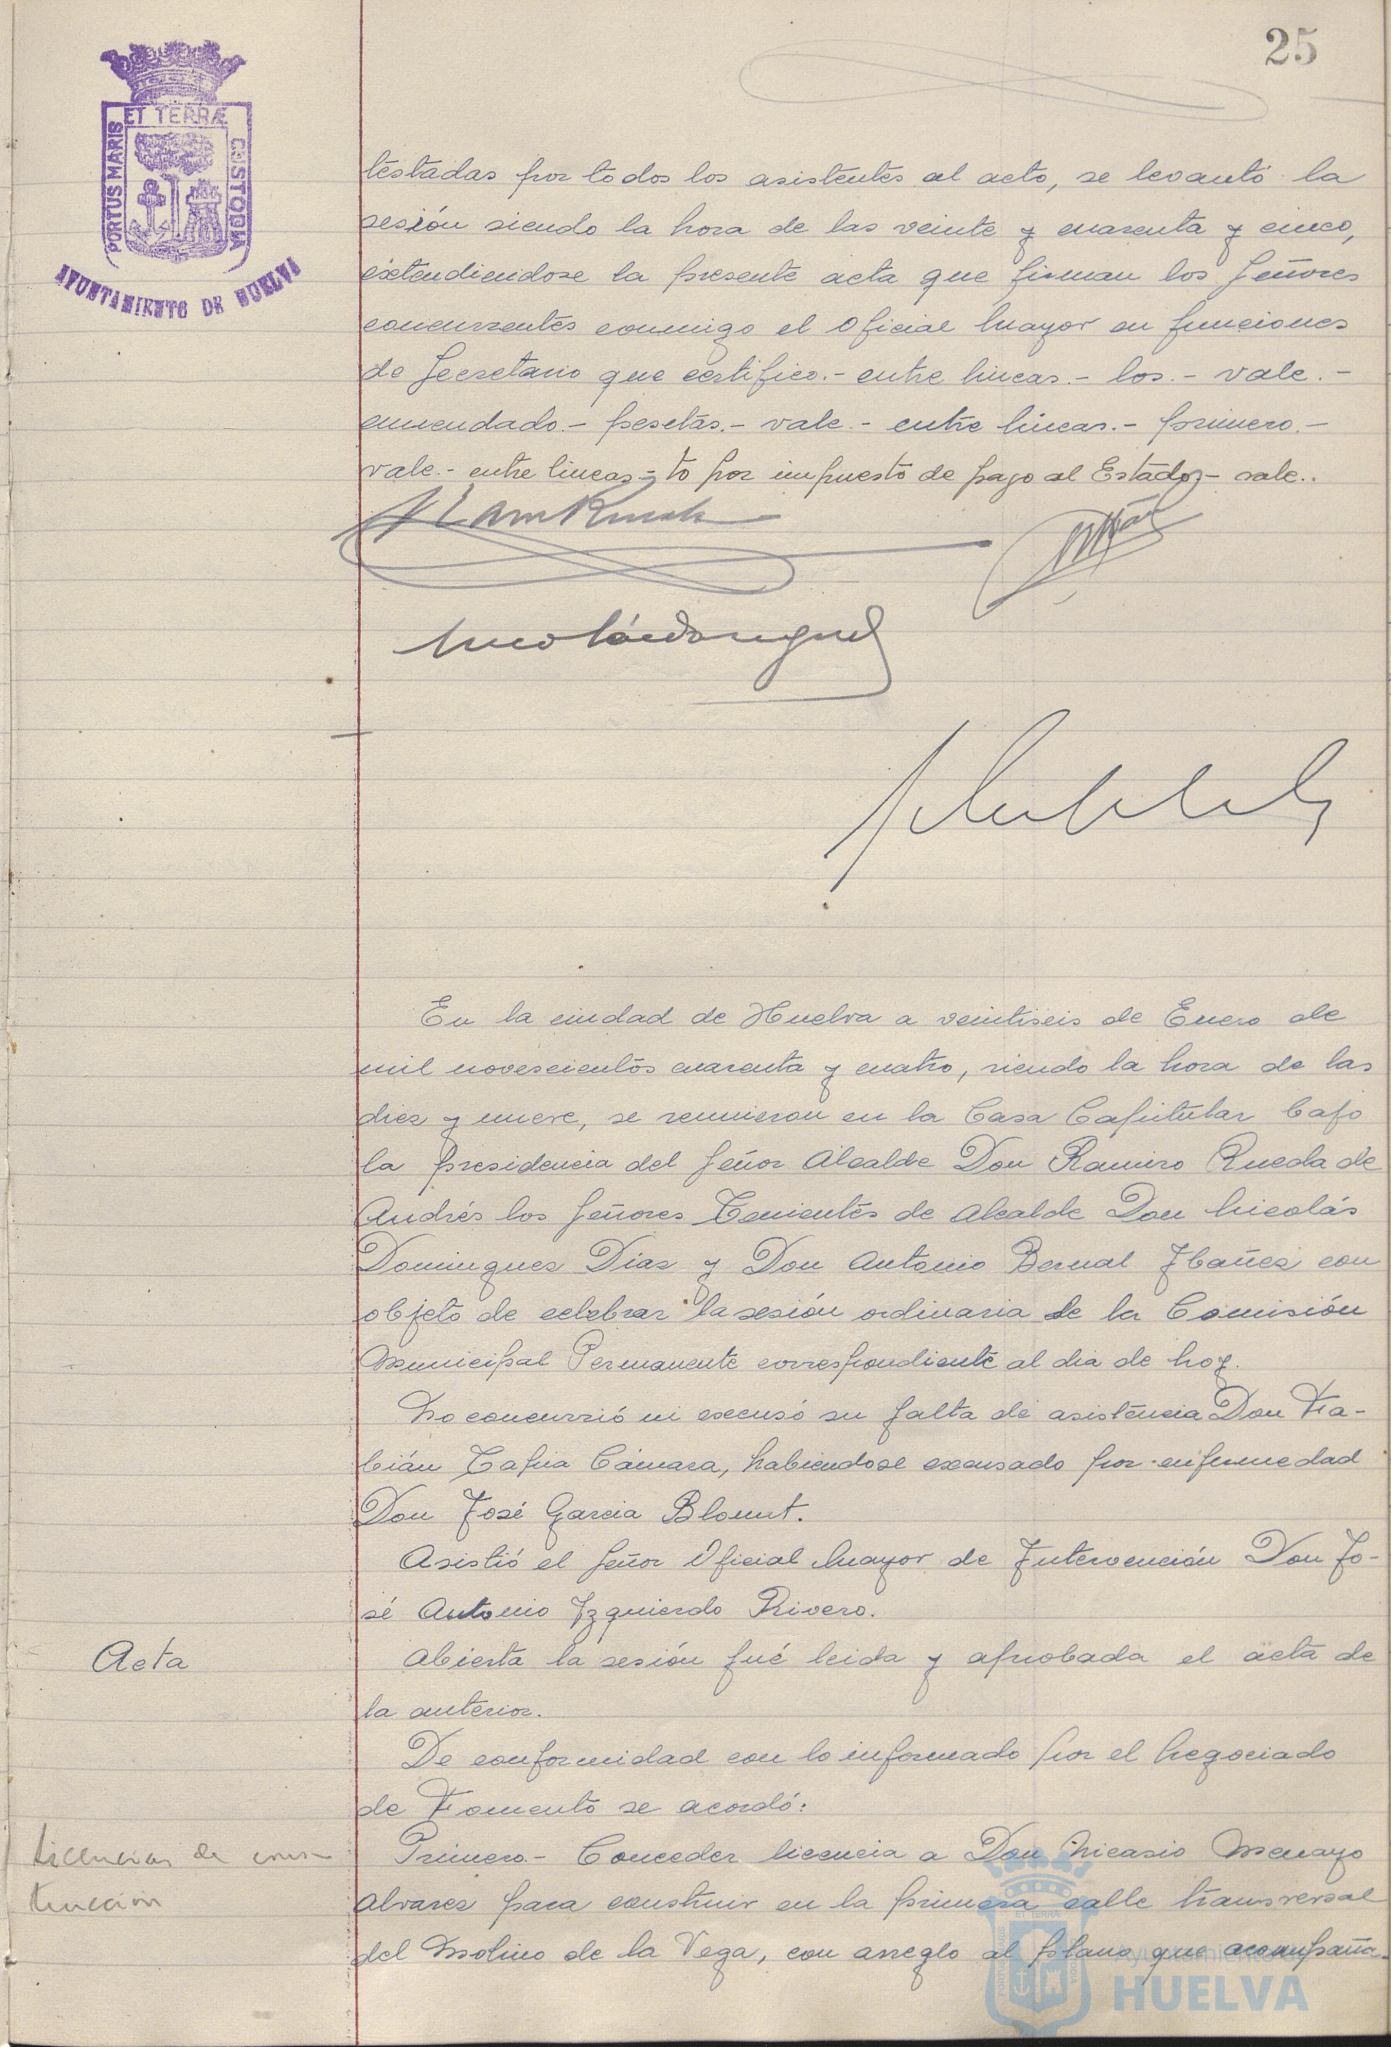 25
ET TERRÆ
PORTUS MARIS
CUSTODIA
AYUNTAMIENTO DE HUELVA
testadas por todos los asistentes al acto, se levantó la
sesión siendo la hora de las veinte y cuarenta y cinco,
extendiendose la presente acta que firman los Señores
concurrentes conmigo el Oficial Mayor en funciones
de Secretario que certifico.- entre lineas.- los.- vale.-
enmendado.- pesetas.- vale.- entre lineas.- primero.-
vale.- entre lineas.- to por impuesto de pago al Estado.- vale..
En la ciudad de Huelva a veintiseis de Enero de
mil novescientos cuarenta y cuatro, siendo la hora de las
diez y nueve, se reunieron en la Casa Capitular bajo
la presidencia del Señor Alcalde Don Ramiro Rueda de
Andrés los Señores Tenientes de Alcalde Don Nicolás
Dominguez Diaz y Don Antonio Bernal Ibañez con
objeto de celebrar la sesión ordinaria de la Comisión
Municipal Permanente correspondiente al dia de hoy.
No concurrió ni escusó su falta de asistencia Don Fa-
bián Tapia Cámara, habiendose excusado por enfermedad
Don José Garcia Blount.
Asistió el Señor Oficial Mayor de Intervención Don Jo-
sé Antonio Izquierdo Rivero.
Acta
Abierta la sesión fué leida y aprobada el acta de
la anterior.
De conformidad con lo informado por el Negociado
de Fomento se acordó:
Licencias de cons-
trucción
Primero.- Conceder licencia a Don Nicasio Menayo
Alvarez para construir en la primera calle transversal
del Molino de la Vega, con arreglo al plano que acompaña.
Ayuntamiento de
HUELVA